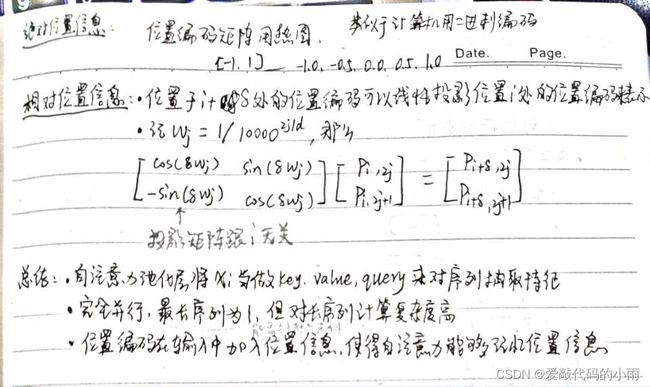 绝对位置信息: 位置编码矩阵用热图. 类似于计算机用二进制编码
[-1, 1] -1.0, -0.5, 0.0, 0.5, 1.0 Date. Page.
相对位置信息: · 位置于i+δ处的位置编码可以线性投影位置i处的位置编码来表示
· 记 wj = 1/10000^2j/d, 那么
[cos(δwj) sin(δwj) [Pi,2j = [Pi+δ,2j
-sin(δwj) cos(δwj)] Pi,2j+1] Pi+δ,2j+1]
↑
投影矩阵跟i无关
总结: · 自注意力池化层将xi当做key. value, query来对序列抽取特征
· 完全并行, 最长序列为1, 但对长序列计算复杂度高
· 位置编码在输入中加入位置信息, 使得自注意力能够 位置信息
CSDN @爱敲代码的小雨